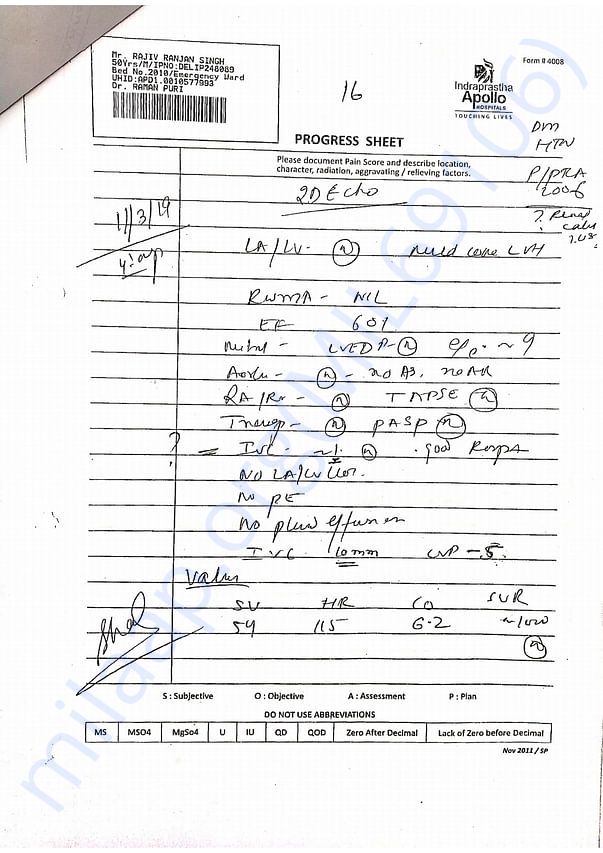 Mr. RAJIV RANJAN SINGH
50Yrs/M/IPNO:DELIP248089
Bed No.2010/Emergency Ward
UHID:APD1.0010577993
Dr. RAMAN PURI
Form # 4008
16
Indraprastha
Apollo
HOSPITALS
TOUCHING LIVES
DM
HTN
PROGRESS SHEET
Please document Pain Score and describe location,
character, radiation, aggravating / relieving factors.
P/PTCA
2006
2D Echo
? Renal
1/3/19
LA/LV - (n) mild conc LVH
RWMA - NIL
EF 60%
LVEDP - (n) ~ 9
(n) - no AS, no AR
RA/RV (n) TAPSE (n)
(n) PASP (n)
? = IVC - (n) . good
NO LA/LV clot.
No PE
No pleural effusion
IVC 10mm CVP - 5.
Values
SV HR CO SVR
54 115 6.2 ~1020
(n)
S : Subjective O : Objective A : Assessment P : Plan
DO NOT USE ABBREVIATIONS
MS MSO4 MgSo4 U IU QD QOD Zero After Decimal Lack of Zero before Decimal
Nov 2011 / SP
milaap.org(MIL69106)